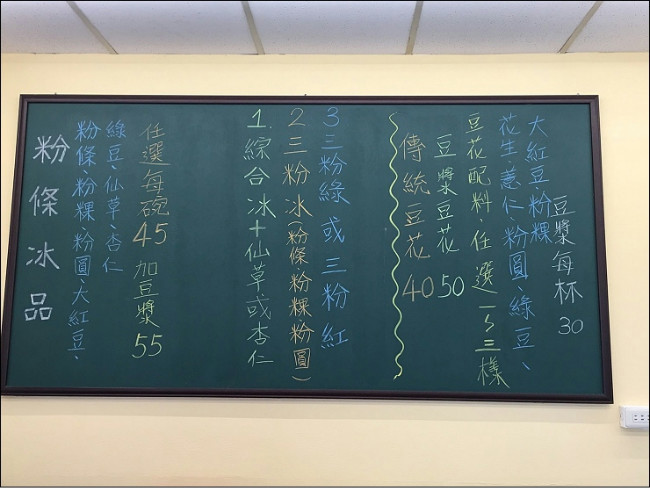 粉條冰品
粉條、粉粿、粉圓、大紅豆、
綠豆、仙草、杏仁
任選每碗45 加豆漿55
1.綜合冰+仙草或杏仁
2.三粉冰(粉條、粉粿、粉圓)
3三粉綠或三粉紅
傳統豆花40
豆漿豆花50
豆花配料、任選一~三樣
花生、薏仁、粉圓、綠豆、
大紅豆、粉粿
豆漿每杯30